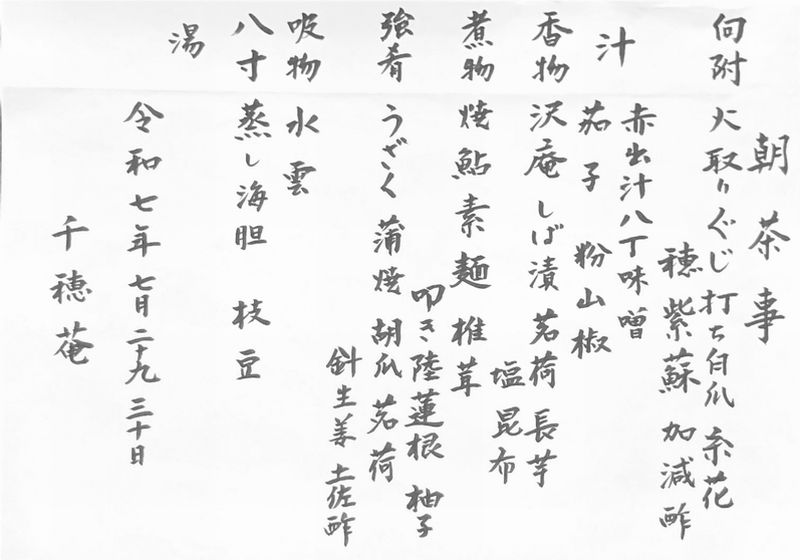 朝茶事
向附 火取りぐじ 打ち白瓜 糸花
穂紫蘇 加減酢
汁 赤出汁八丁味噌
茄子 粉山椒
香物 沢庵 しば漬 茗荷 長芋
塩昆布
煮物 焼鮎 素麺 椎茸
叩き陸蓮根 柚子
強肴 うざく 蒲焼 胡瓜 茗荷
針生姜 土佐酢
吸物 水雲
八寸 蒸し海胆 枝豆
湯
令和七年 七月二十九 三十日
千穂菴